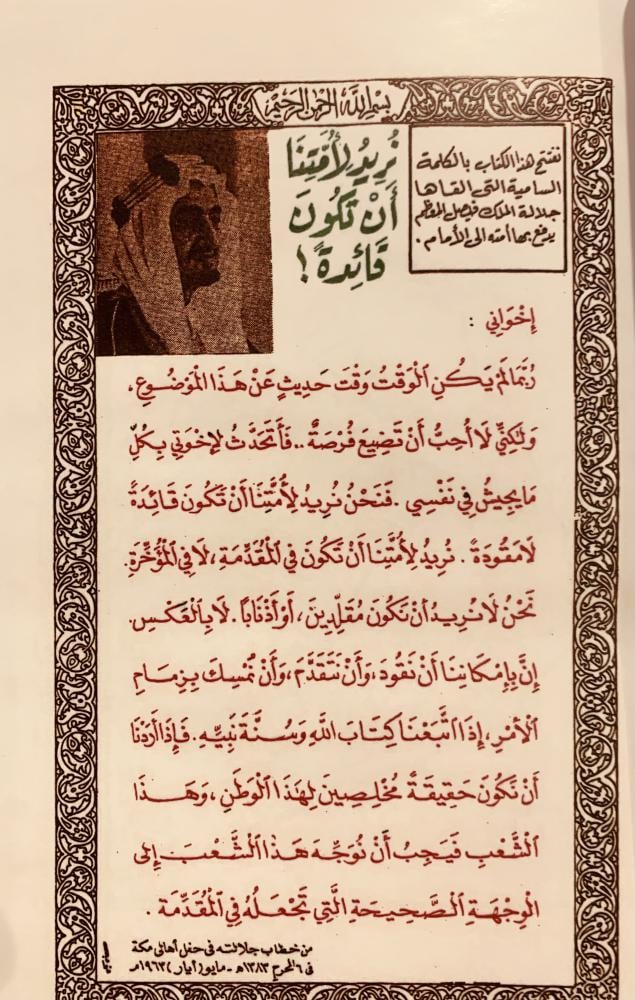 بسم الله الرحمن الرحيم
نفتتح هذا الكتاب بالكلمة
السامية التي القاها
جلالة الملك فيصل المعظم
يدفع بها أمته الى الأمام .
نُرِيدُ لِأُمَّتِنَا
أَنْ تَكُونَ
قَائِدَةً !
إِخْوَانِي :
رُبَّمَا لَمْ يَكُنِ الْوَقْتُ وَقْتَ حَدِيثٍ عَنْ هَذَا الْمَوْضُوعِ ،
وَلٰكِنِّي لَا أُحِبُّ أَنْ تَضِيعَ فُرْصَةٌ .. فَأَتَحَدَّثُ لِإِخْوَتِي بِكُلِّ
مَا يَجِيشُ فِي نَفْسِي . فَنَحْنُ نُرِيدُ لِأُمَّتِنَا أَنْ تَكُونَ قَائِدَةً
لَا مَقُودَةً . نُرِيدُ لِأُمَّتِنَا أَنْ تَكُونَ فِي الْمُقَدِّمَةِ ، لَا فِي الْمُؤَخَّرَةِ .
نَحْنُ لَا نُرِيدُ أنْ نَكُونَ مُقَلِّدِينَ ، أَوْ أَذْنَابًا . لَا بِالْعَكْسِ .
إِنَّ بِإِمْكَانِنَا أَنْ نَقُودَ ، وَأَنْ نَتَقَدَّمَ ، وَأَنْ نُمْسِكَ بِزِمَامِ
الْأَمْرِ ، إِذَا اتَّبَعْنَا كِتَابَ اللَّهِ وَسُنَّةَ نَبِيِّهِ . فَإِذَا أَرَدْنَا
أَنْ نَكُونَ حَقِيقَةً مُخْلِصِينَ لِهَذَا الْوَطَنِ ، وَهَذَا
الشَّعْبِ فَيَجِبُ أَنْ نُوَجِّهَ هَذَا الشَّعْبَ إِلى
الْوِجْهَةِ الصَّحِيحَةِ الَّتِي تَجْعَلُهُ فِي الْمُقَدِّمَةِ .
من خطاب جلالته في حفل أهالي مكة
في ٦ المحرم ١٣٨٣هـ - مايو (أيار) ١٩٦٣م